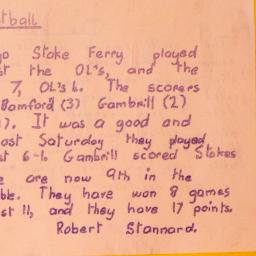 tball.
go Stoke Ferry played
st the OL's, and the
7, OL's 6. The scorers
Bamford (3) Gambrill (2)
). It was a good and
ast Saturday they played
st 6-1. Gambrill scored Stokes
e are now 9th in the
ble. They have won 8 games
st 11, and they have 17 points.
Robert Stannard.